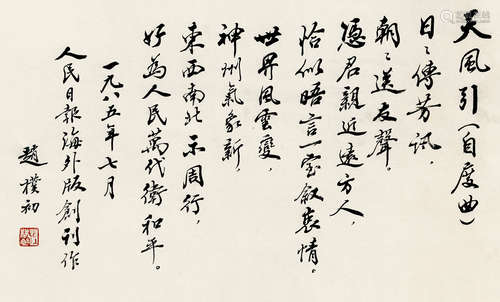 天風引（自度曲）
日〻傳芳訊，
朝〻送友聲。
憑君親近遠方人，
恰似晤言一室敘衷情。
世界風雲變，
神州氣象新，
東西南北示周行，
好為人民萬代衛和平。
一九八五年七月
人民日報海外版創刊作
趙樸初